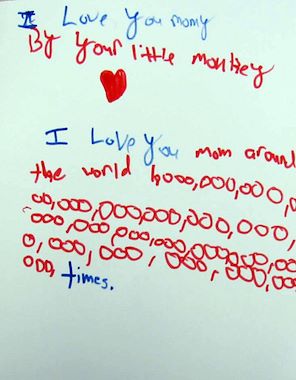 I Love You momy
By your little monkey
I Love You mom around
the world 6,000,000,000,0
00,000,000,000,000,000,
000,000,000,000,000,000,00
0,000,000,000,000,00
000, times.